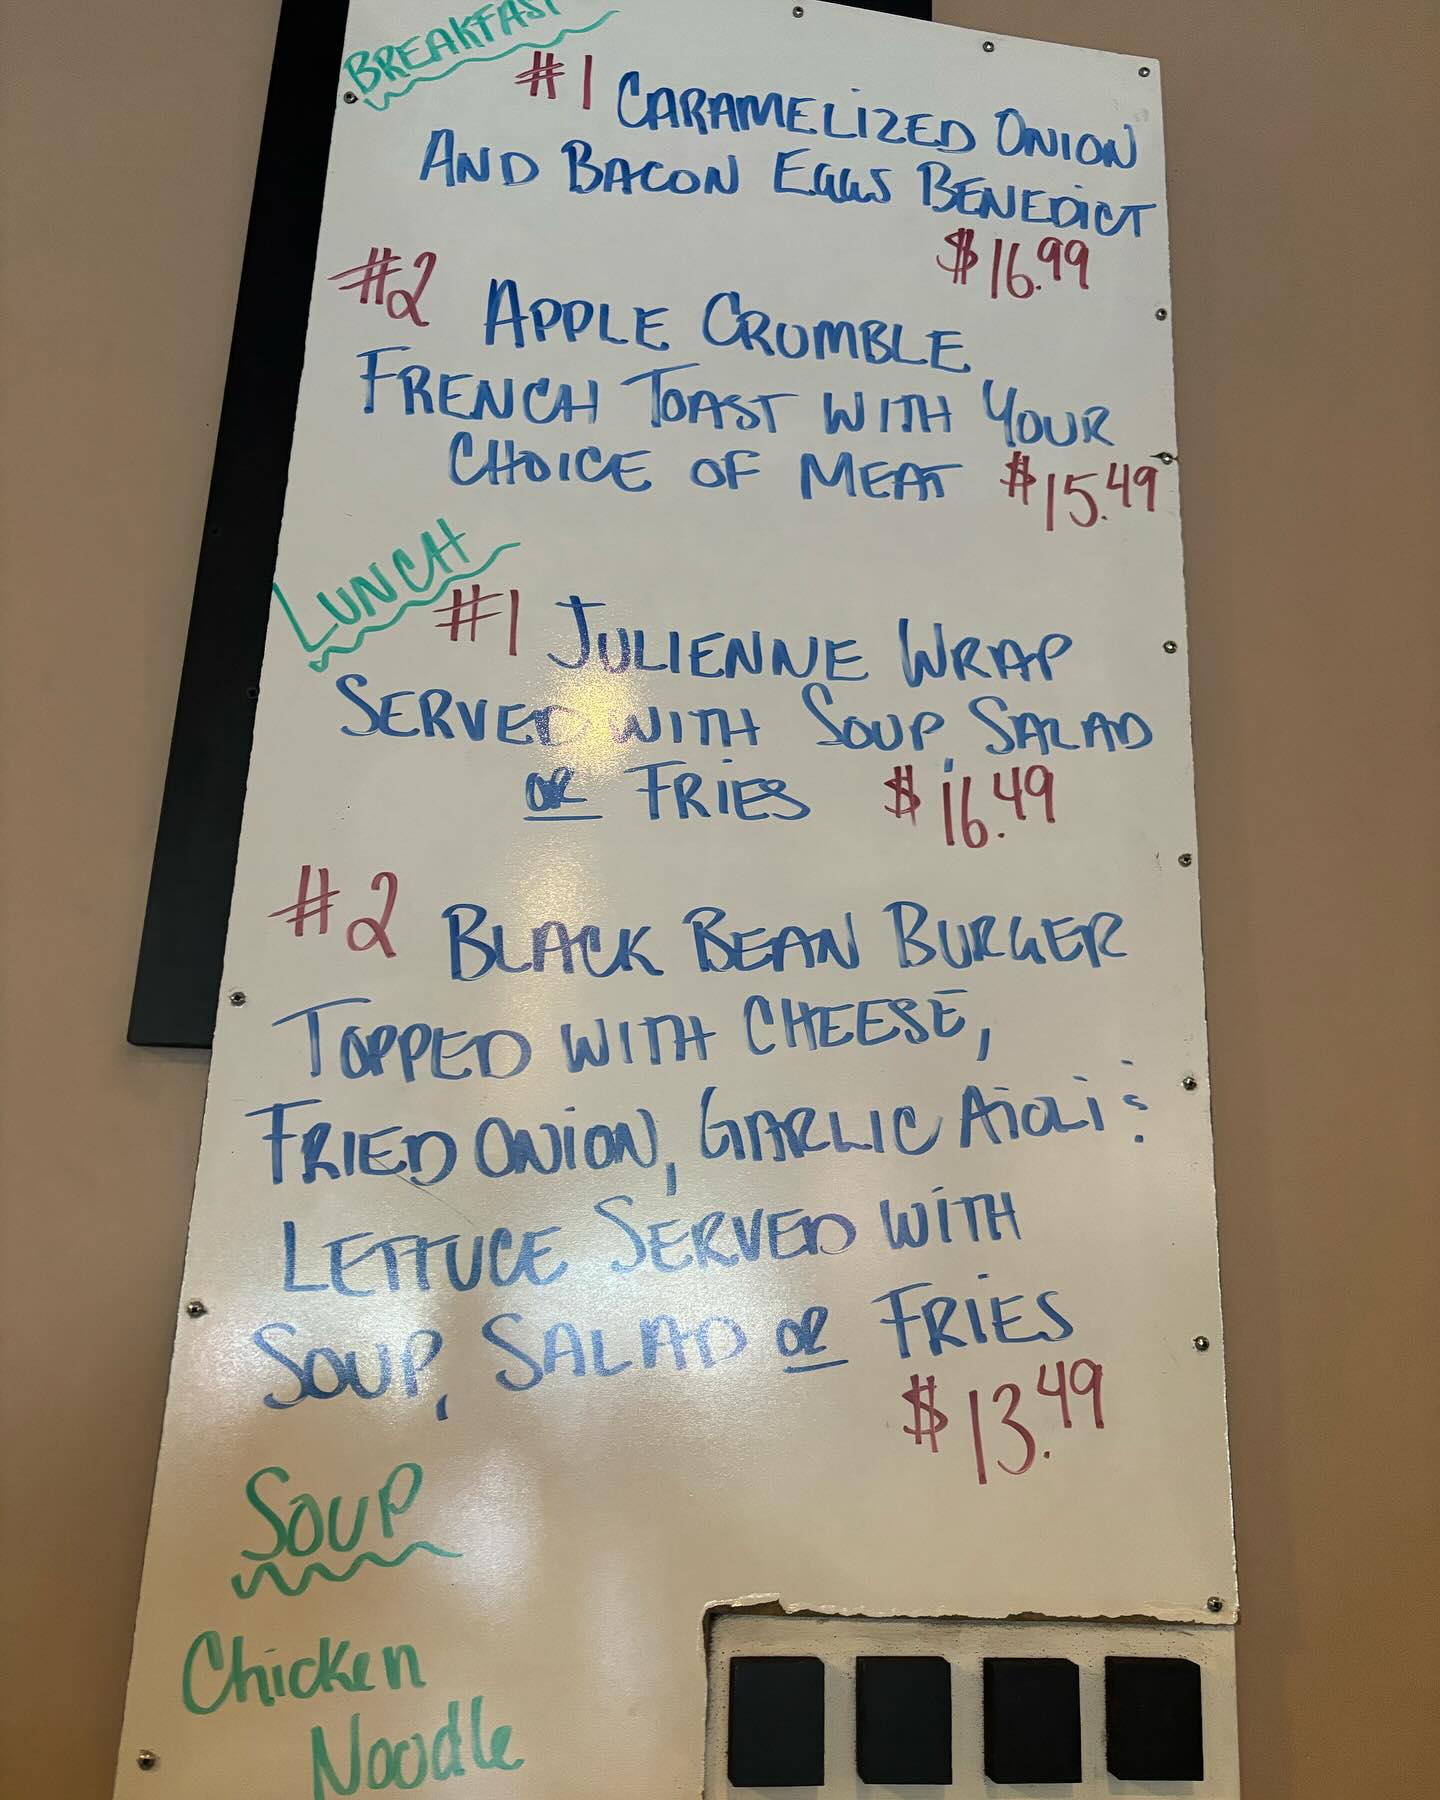 BREAKFAST
#1 CARAMELIZED ONION
AND BACON EGGS BENEDICT
$16.99
#2 APPLE CRUMBLE
FRENCH TOAST WITH YOUR
CHOICE OF MEAT $15.49
LUNCH
#1 JULIENNE WRAP
SERVED WITH SOUP, SALAD
OR FRIES $16.49
#2 BLACK BEAN BURGER
TOPPED WITH CHEESE,
FRIED ONION, GARLIC AIOLI &
LETTUCE SERVED WITH
SOUP, SALAD OR FRIES
$13.49
SOUP
Chicken
Noodle